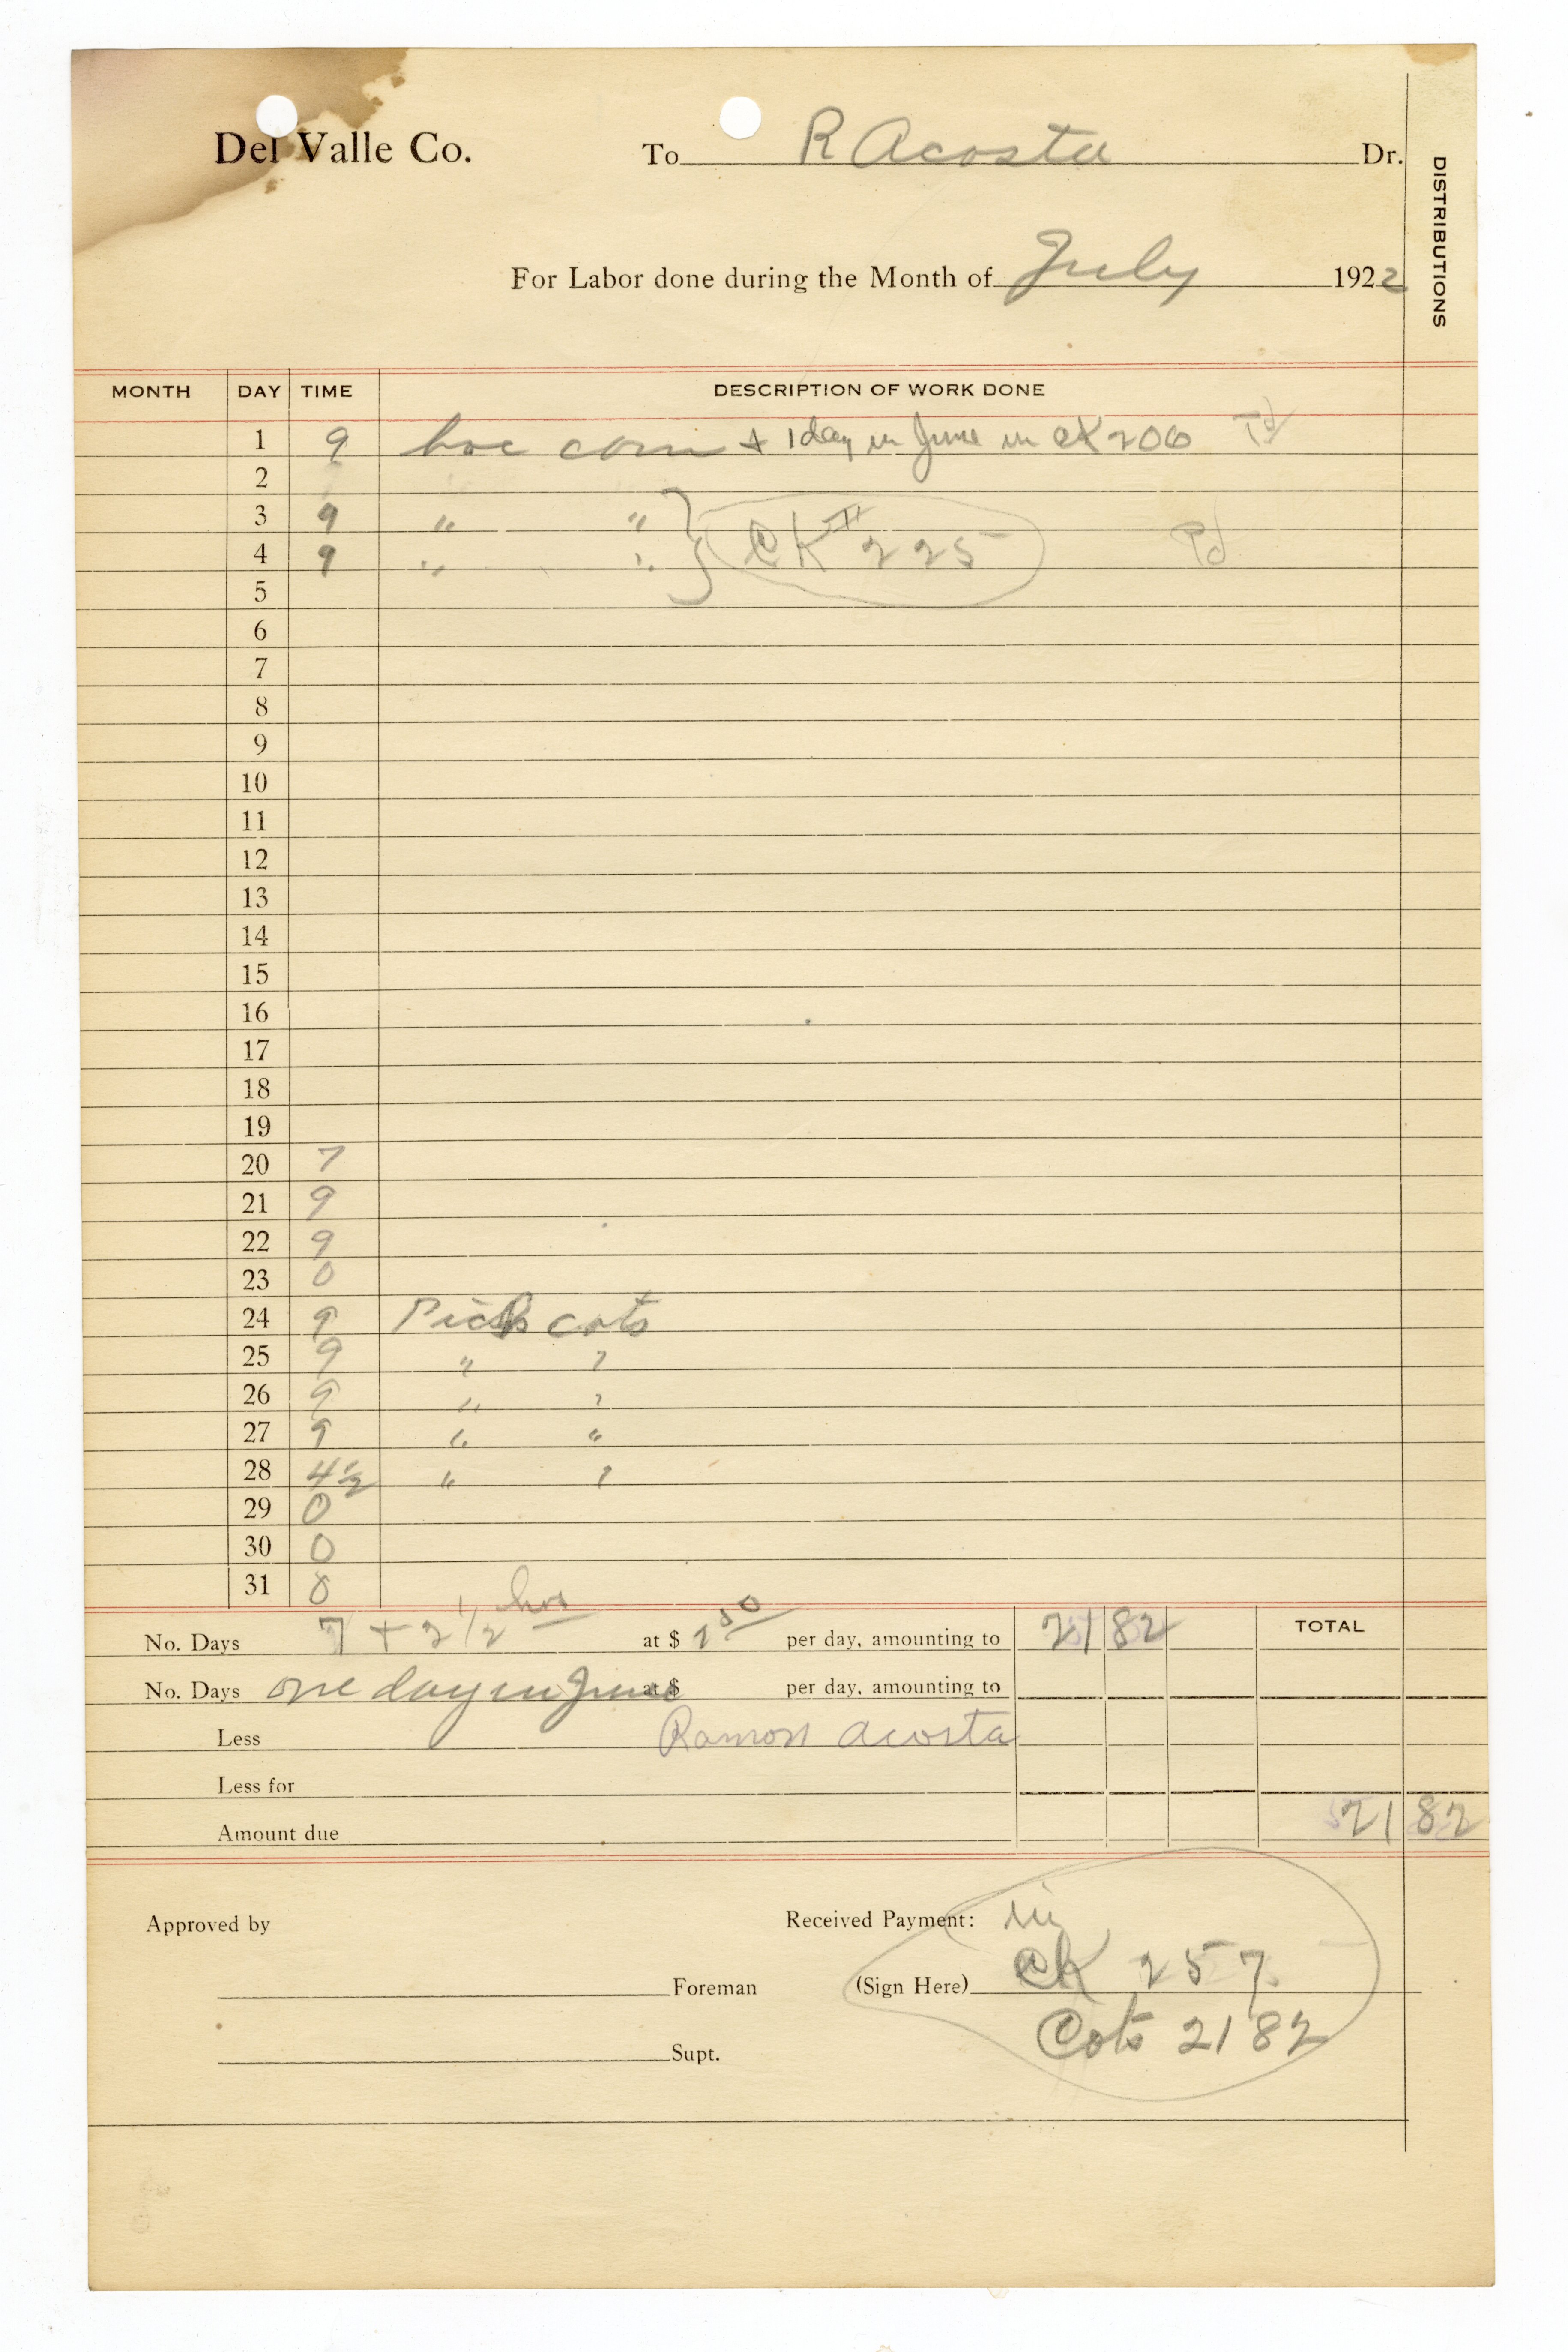 Del Valle Co. To R Acosta Dr.
DISTRIBUTIONS
For Labor done during the Month of July 1922
MONTH DAY TIME DESCRIPTION OF WORK DONE
1 9 hoe corn + 1 day in June in CK 206 Pd
2
3 9 " "
CK # 225 Pd
4 9 " "
5
6
7
8
9
10
11
12
13
14
15
16
17
18
19
20 7
21 9
22 9
23 0
24 9 Pick cots
25 9 " "
26 9 " "
27 9 " "
28 4 1/2 " "
29 0
30 0
31 8
No. Days 7 + 2 1/2 hrs at $ per day, amounting to 21 82 TOTAL
No. Days one day in June at $ per day, amounting to
Less Ramon Acosta
Less for
Amount due 21 82
Approved by Received Payment: in
Foreman (Sign Here) CK 257
Cots 21 82
Supt.